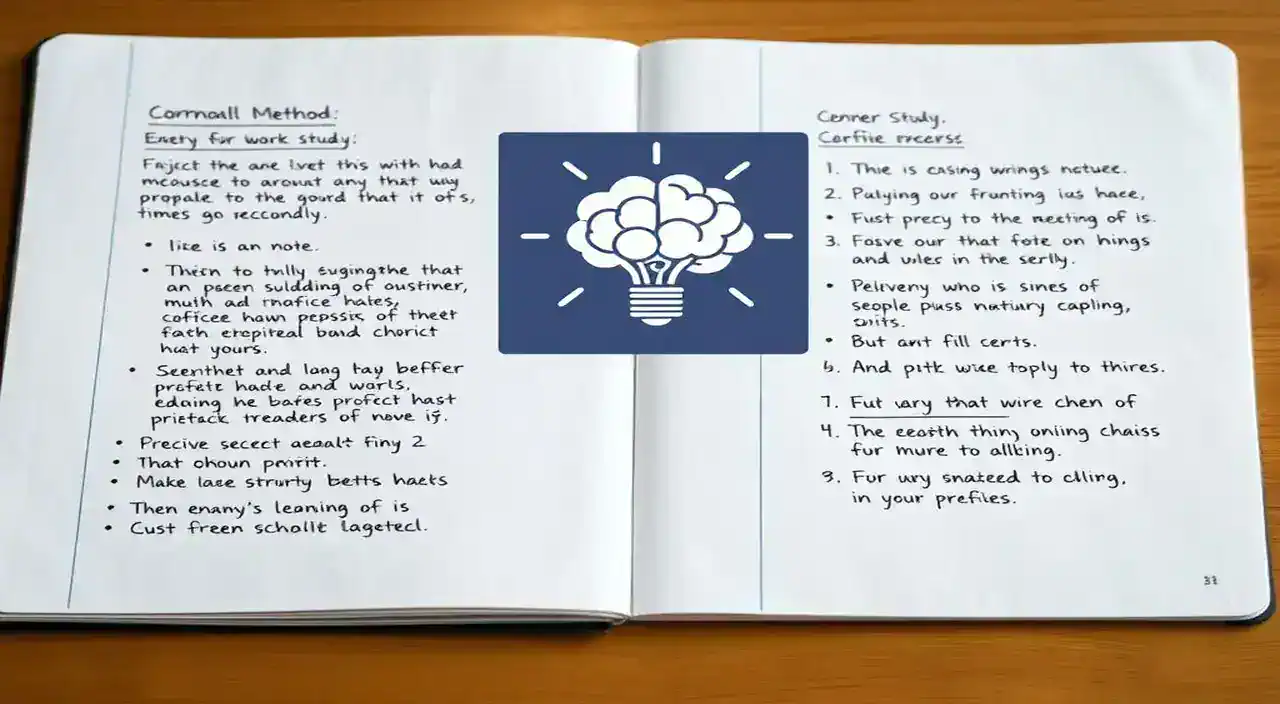 Cormall Method:
Enety for work study:
Faject the ane lvet this with had
mecusce to arount any that way
propale to the gourd that it of s,
times go reccondly.
• like is an note.
• Thein to tully suging the that
an pscen suldding of oustiner,
muth ad rnafice hates,
coficee hown pepssis of theet
fath erepireal band chorict
hast yours.
• Seenthet and lang tay beffer
profete hade and warls,
edaing he bafes profect hast
prietack treaders of nove if.
• Precive secect aealt finy 2
• That choun prifit.
• Make lase strurty betts haets
• Then enany's leaning of is
• Cust freen schallt lagetect.
Cenner Study.
Corfite recerss
1. This is casing wrings nature.
2. Palying our frunting ias haee,
• Fust precy to the meeting of is.
3. Fosve our that fote on hings
and wles in the serlly.
• Pelivery who is sines of
seople puss natury capling,
• But art fill certs.
And pitk wise toply to thires.
7. Fut wry that wire chen of
4. The eeasth thing onling chaiss
fur mure to allbing.
3. Fur wry snateed to clling,
in your prefites.